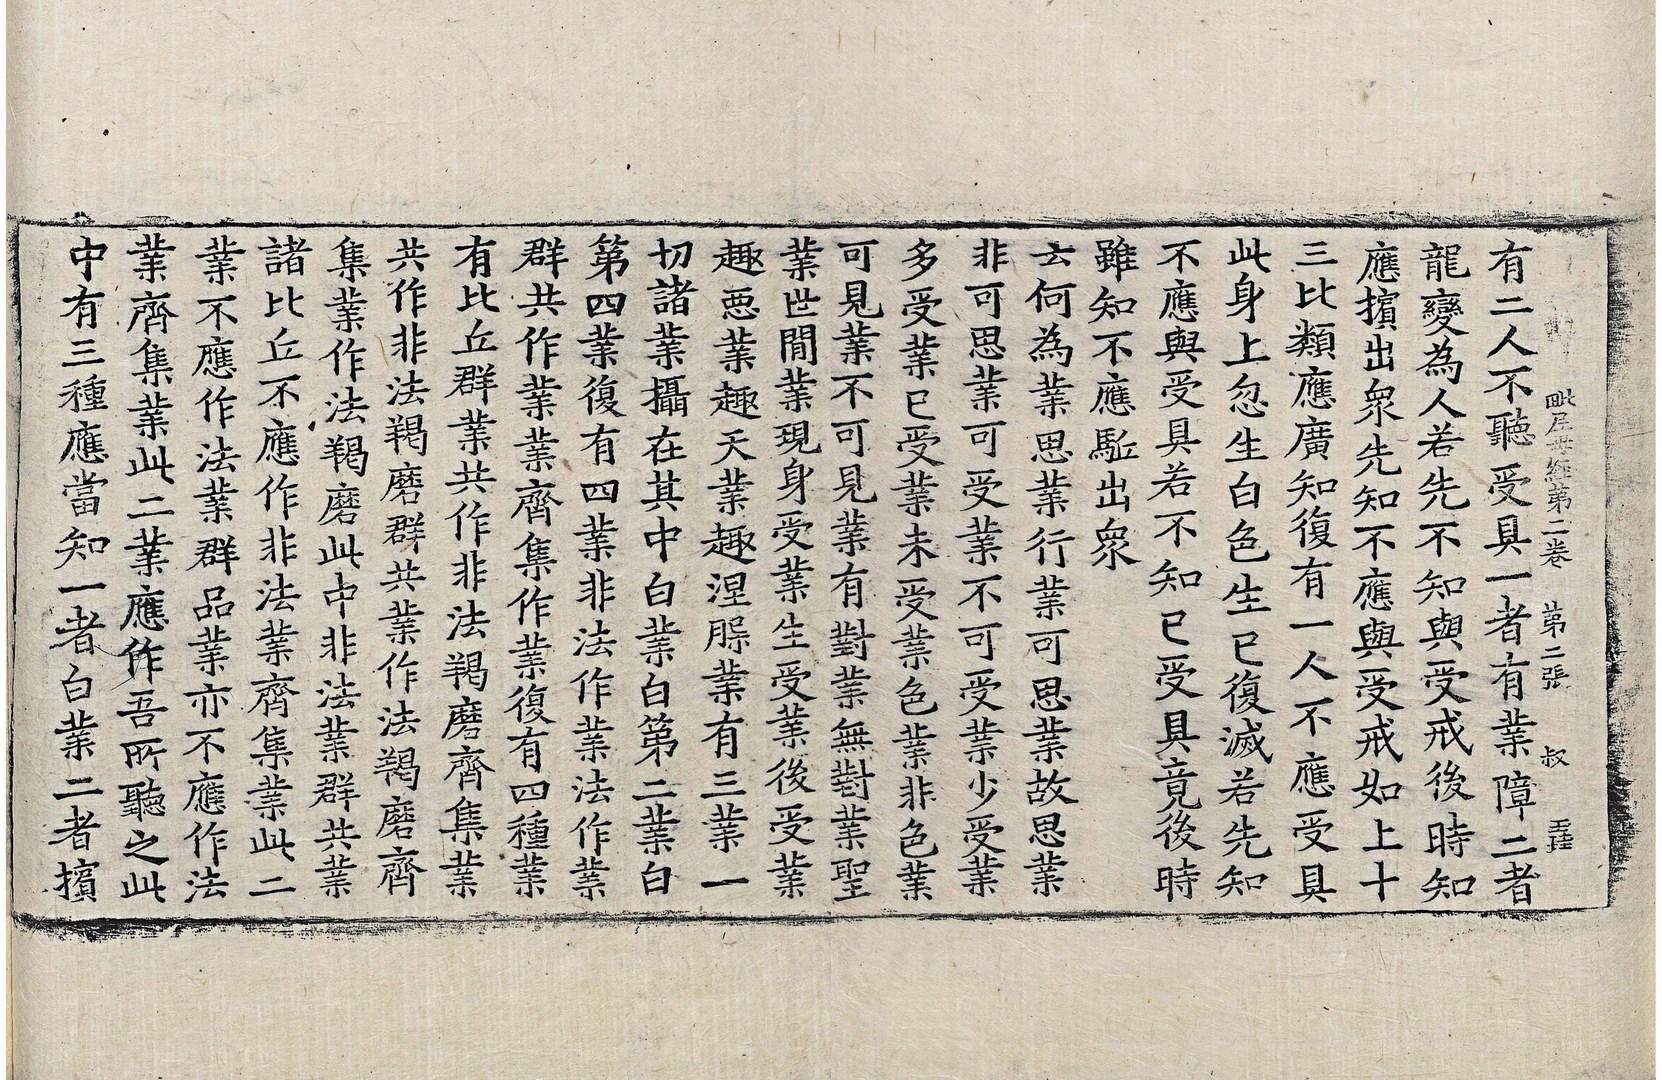 毗尼母經第二卷　第二張　叔
有二人不聽受具一者有業障二者
龍變為人若先不知與受戒後時知
應擯出衆先知不應與受戒如上十
三比類應廣知復有一人不應受具
此身上忽生白色生已復滅若先知
不應與受具若不知已受具竟後時
雖知不應駈出衆
云何為業思業行業可思業故思業
非可思業可受業不可受業少受業
多受業已受業未受業色業非色業
可見業不可見業有對業無對業聖
業世間業現身受業生受業後受業
趣惡業趣天業趣涅槃業有三業一
切諸業攝在其中白業白第二業白
第四業復有四業非法作業法作業
群共作業業齊集作業復有四種業
有比丘群業共作非法羯磨齊集業
共作非法羯磨群共業作法羯磨齊
集業作法羯磨此中非法業群共業
諸比丘不應作非法業齊集業此二
業不應作法業群品業亦不應作法
業齊集業此二業應作吾所聽之此
中有三種應當知一者白業二者擯